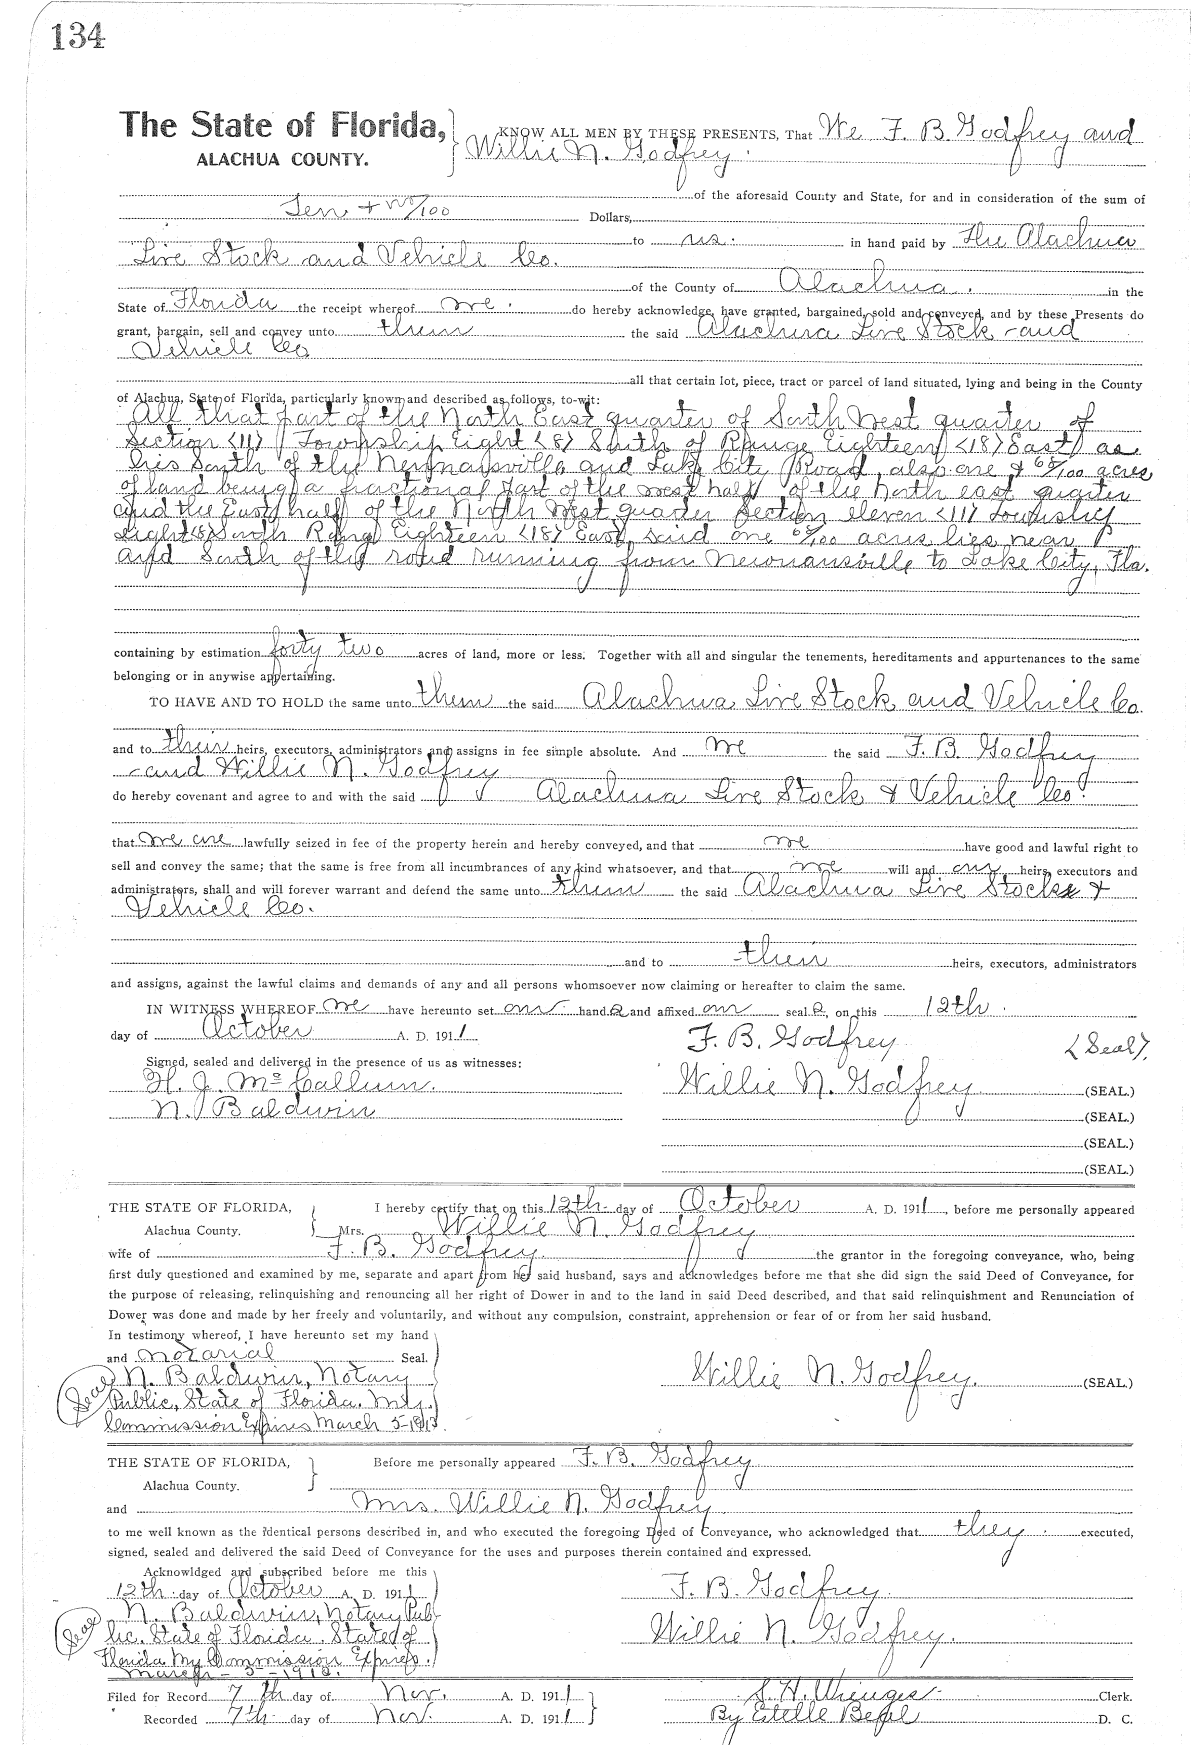 134
The State of Florida, KNOW ALL MEN BY THESE PRESENTS, That We F. B. Godfrey and
ALACHUA COUNTY. Willie N. Godfrey.
of the aforesaid County and State, for and in consideration of the sum of
Ten + no/100 Dollars,
to us. in hand paid by The Alachua
Live Stock and Vehicle Co.
of the County of Alachua. in the
State of Florida the receipt whereof we. do hereby acknowledge, have granted, bargained, sold and conveyed, and by these Presents do
grant, bargain, sell and convey unto them the said Alachua Live Stock and
Vehicle Co
all that certain lot, piece, tract or parcel of land situated, lying and being in the County
of Alachua, State of Florida, particularly known and described as follows, to-wit:
All that part of the North East quarter of South West quarter of
Section <11> Township Eight <8> South of Range Eighteen <18> East as
lies South of the Newnansville and Lake City Road, also one & 65/100 acres
of land being a fractional part of the west half of the North east quarter
and the East half of the North West quarter Section eleven <11> Township
Eight <8> South Range Eighteen <18> East, said one 65/100 acres lies near
and South of the road running from Newnansville to Lake City, Fla.
containing by estimation forty two acres of land, more or less. Together with all and singular the tenements, hereditaments and appurtenances to the same
belonging or in anywise appertaining.
TO HAVE AND TO HOLD the same unto them the said Alachua Live Stock and Vehicle Co.
and to their heirs, executors, administrators and assigns in fee simple absolute. And we the said F. B. Godfrey
and Willie N. Godfrey
do hereby covenant and agree to and with the said Alachua Live Stock & Vehicle Co.
that we are lawfully seized in fee of the property herein and hereby conveyed, and that we have good and lawful right to
sell and convey the same; that the same is free from all incumbrances of any kind whatsoever, and that we will and our heirs, executors and
administrators, shall and will forever warrant and defend the same unto them the said Alachua Live Stock &
Vehicle Co.
and to their heirs, executors, administrators
and assigns, against the lawful claims and demands of any and all persons whomsoever now claiming or hereafter to claim the same.
IN WITNESS WHEREOF we have hereunto set our hands and affixed our seals, on this 12th.
day of October A. D. 1911 F. B. Godfrey <Seal>.
Signed, sealed and delivered in the presence of us as witnesses:
H. J. McCallum. Willie N. Godfrey (SEAL.)
N. Baldwin (SEAL.)
(SEAL.)
(SEAL.)
THE STATE OF FLORIDA, I hereby certify that on this 12th. day of October A. D. 1911, before me personally appeared
Alachua County. Mrs. Willie N. Godfrey
wife of F. B. Godfrey the grantor in the foregoing conveyance, who, being
first duly questioned and examined by me, separate and apart from her said husband, says and acknowledges before me that she did sign the said Deed of Conveyance, for
the purpose of releasing, relinquishing and renouncing all her right of Dower in and to the land in said Deed described, and that said relinquishment and Renunciation of
Dower was done and made by her freely and voluntarily, and without any compulsion, constraint, apprehension or fear of or from her said husband.
In testimony whereof, I have hereunto set my hand
and notarial Seal.
Seal N. Baldwin, Notary Willie N. Godfrey. (SEAL.)
Public, State of Florida. My
Commission Expires March 5-1913.
THE STATE OF FLORIDA, Before me personally appeared F. B. Godfrey
Alachua County.
and Mrs. Willie N. Godfrey
to me well known as the identical persons described in, and who executed the foregoing Deed of Conveyance, who acknowledged that they. executed,
signed, sealed and delivered the said Deed of Conveyance for the uses and purposes therein contained and expressed.
Acknowldged and subscribed before me this
12th. day of October A. D. 1911 F. B. Godfrey.
N. Baldwin, Notary Pub-
Seal lic. State of Florida. State of Willie N. Godfrey.
Florida My Commission Expires.
March - 5 -
Filed for Record 7th day of Nov. A. D. 1911 S. H. Wienges. Clerk.
Recorded 7th. day of Nov. A. D. 1911 By Estelle D. C.